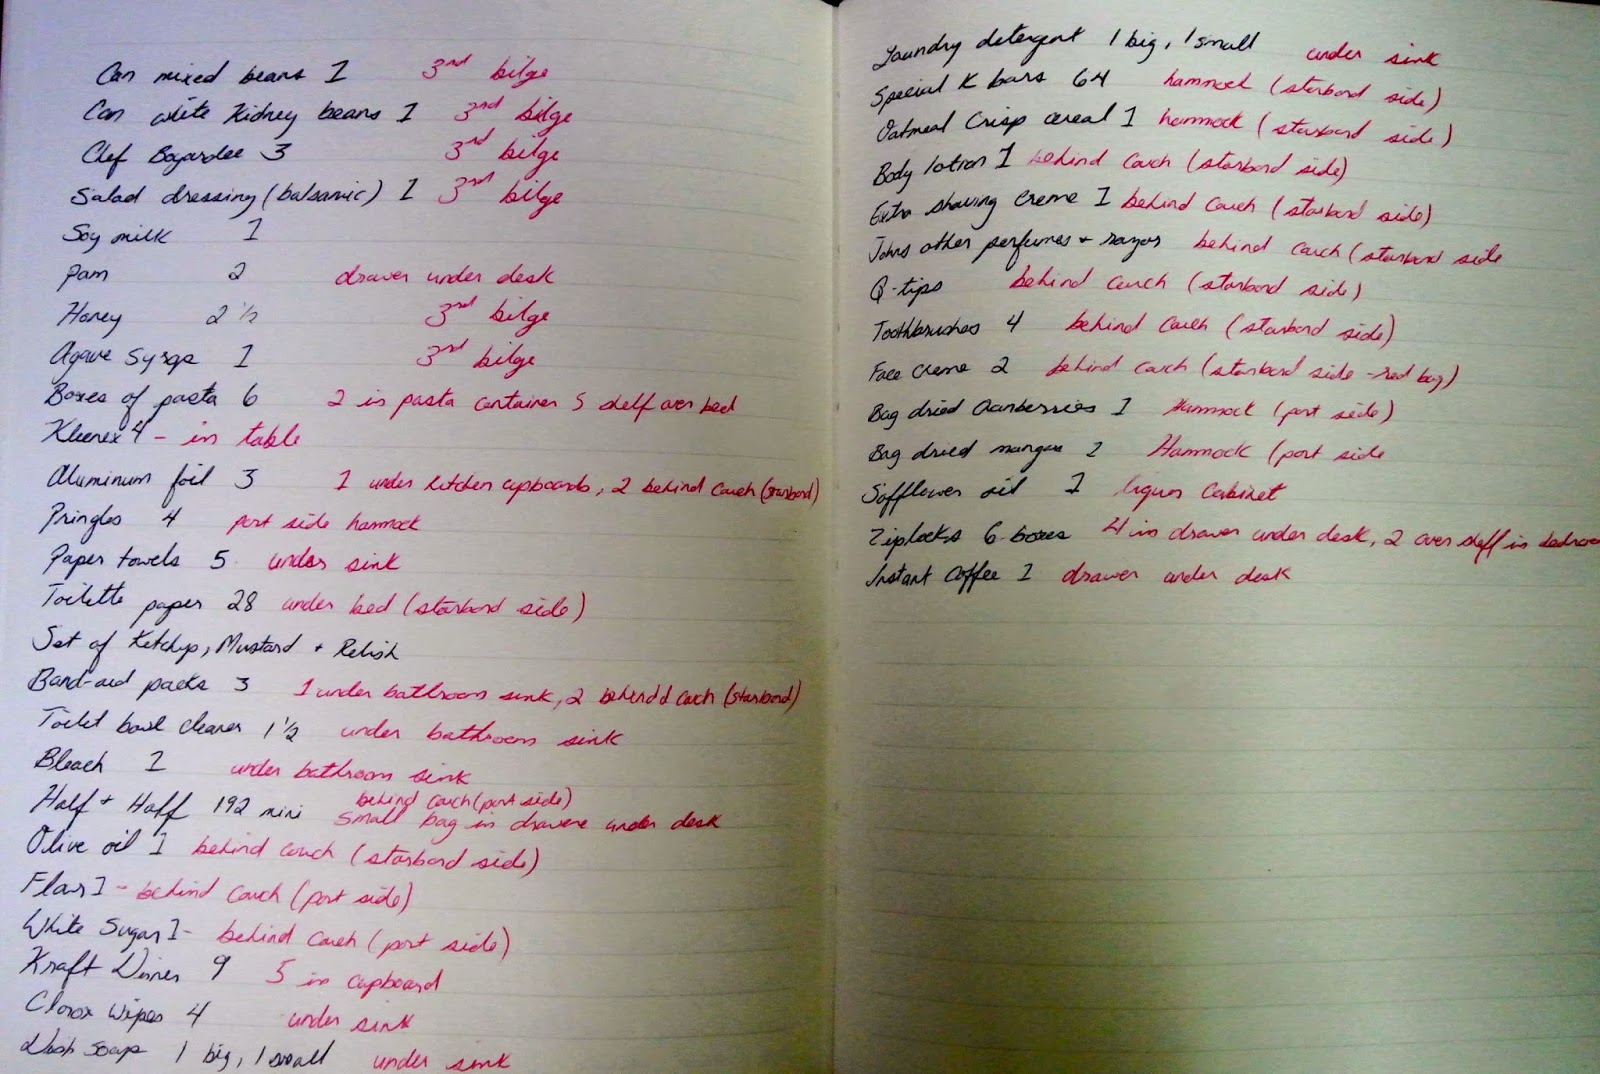 Can mixed beans 1 3rd bilge
Can white Kidney beans 1 3rd bilge
Chef Boyardee 3 3rd bilge
Salad dressing (balsamic) 1 3rd bilge
Soy milk 1
Pam 2 drawer under desk
Honey 2 1/2 3rd bilge
Agave Syrup 1 3rd bilge
Boxes of pasta 6 2 in pasta container 5 shelf over bed
Kleenex 4 - in table
Aluminum foil 3 1 under kitchen cupboards, 2 behind couch (starbord)
Pringles 4 port side hammock
Paper towels 5 under sink
Toilette paper 28 under bed (starbord side)
Set of Ketchup, Mustard + Relish
Band-aid packs 3 1 under bathroom sink, 2 behindd couch (starbord)
Toilet bowl cleaner 1 1/2 under bathroom sink
Bleach 1 under bathroom sink
Half + Half 192 mini behind couch (port side)
small bag in drawere under desk
Olive oil 1 behind couch (starbord side)
Flour 1 - behind couch (port side)
White Sugar 1 - behind couch (port side)
Kraft Dinner 9 5 in cupboard
Clorox wipes 4 under sink
Dish soap 1 big, 1 small under sink
Laundry detergent 1 big, 1 small under sink
Special K bars 64 hammock (starbord side)
Oatmeal Crisp cereal 1 hammock (starbord side)
Body lotion 1 behind couch (starbord side)
Extra shaving creme 1 behind couch (starbord side)
Johns other perfumes + razors behind couch (starbord side
Q-tips behind couch (starbord side)
Toothbrushes 4 behind couch (starbord side)
Face creme 2 behind couch (starbord side - red bag)
Bag dried cranberries 1 Hammock (port side)
Bag dried mangos 1 Hammock (port side
Safflower oil 1 liquor cabinet
Ziplocks 6 boxes 4 in drawer under desk, 2 over shelf in
Instant coffee 1 drawer under desk